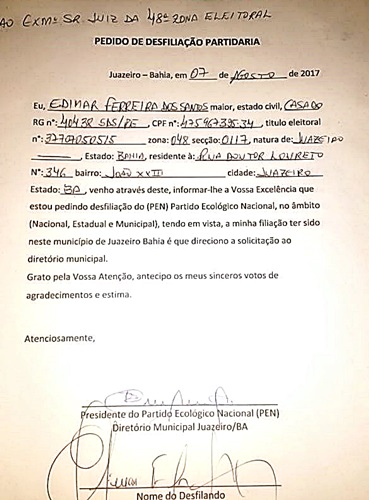 AO EXMº SR. JUIZ DA 48ª ZONA ELEITORAL
PEDIDO DE DESFILIAÇÃO PARTIDARIA
Juazeiro – Bahia, em 07 de AGOSTO de 2017
Eu, EDIMAR FERREIRA DOS SANTOS maior, estado civil, CASADO
RG n°: 40438 SDS/PE, CPF n°: 475967335.34, titulo eleitoral
n°: 37707050515 zona: 048 secção: 0117, natura de: JUAZEIRO
, Estado: BAHIA, residente à: RUA DOUTOR LOURETO
N°: 346 bairro: JOÃO XXIII cidade: JUAZEIRO
Estado: BA, venho através deste, informar-lhe a Vossa Excelência que
estou pedindo desfiliação do (PEN) Partido Ecológico Nacional, no âmbito
(Nacional, Estadual e Municipal), tendo em vista, a minha filiação ter sido
neste município de Juazeiro Bahia é que direciono a solicitação ao
diretório municipal.
Grato pela Vossa Atenção, antecipo os meus sinceros votos de
agradecimentos e estima.
Atenciosamente,
Presidente do Partido Ecológico Nacional (PEN)
Diretório Municipal Juazeiro/BA
Nome do Desfilando